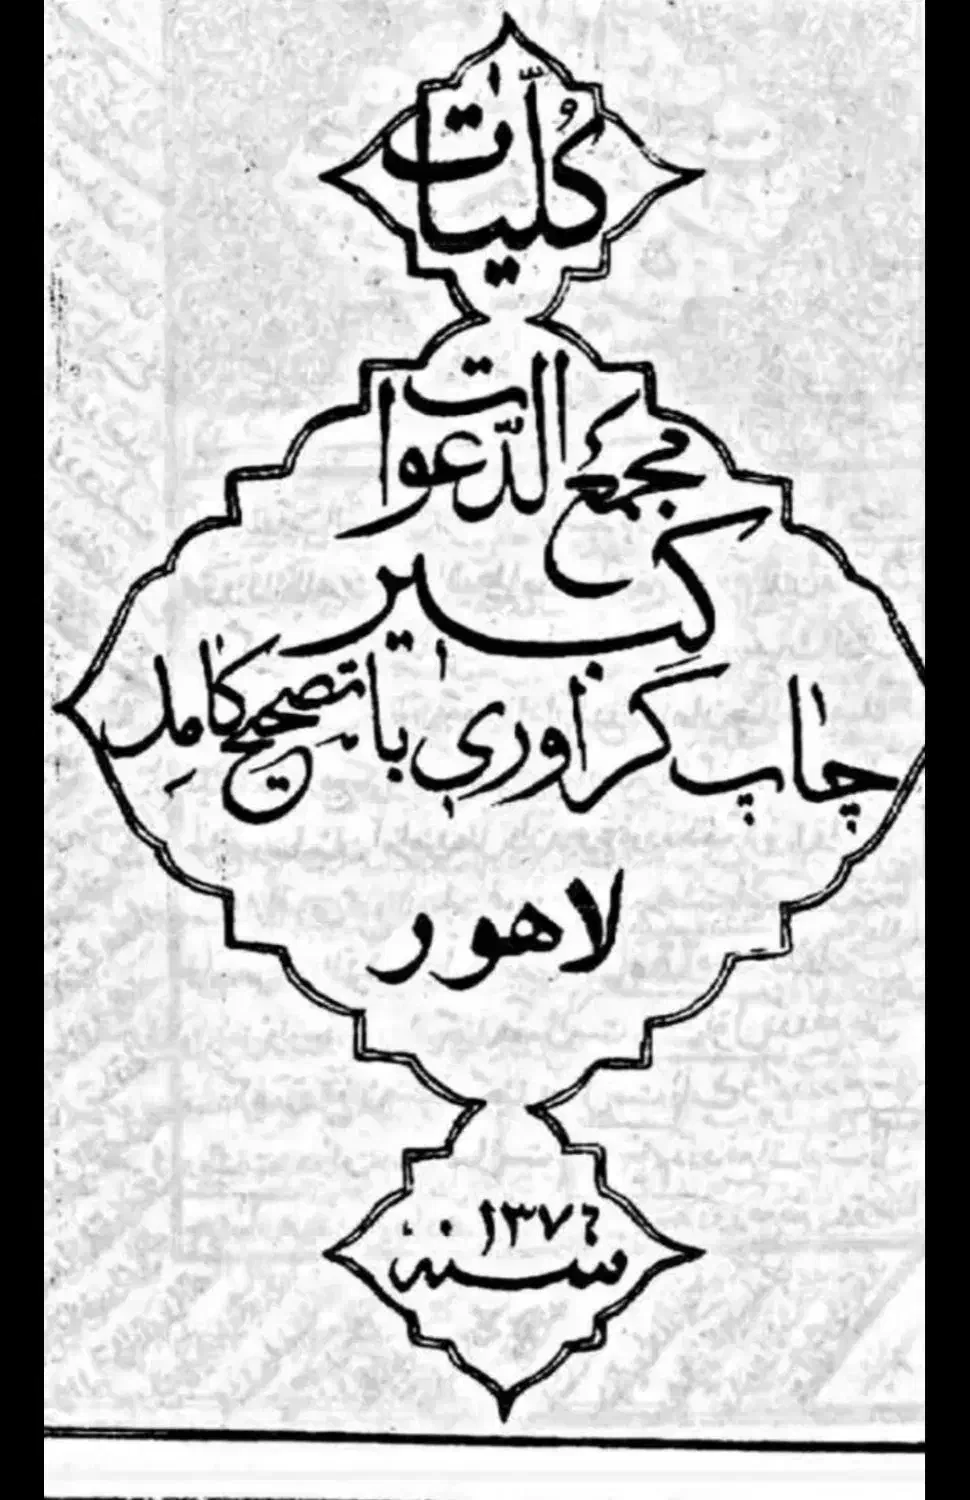 کُلّیات
مجمعَ الدّعوات
کبیر
چاپ گراوری با تصحیح کامِل
لاهور
۱۳۷۶
سنه